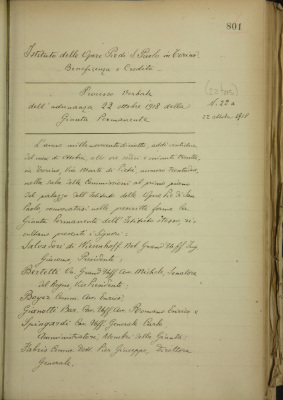 801
Istituto delle Opere Pie di S. Paolo in Torino
Beneficenza e Credito
Processo Verbale
dell'adunanza 22 ottobre 1918 della
Giunta Permanente
N. 22
22 ottobre 1918
L'anno millenovecentodiciotto, addì ventidue
del mese di ottobre, alle ore
in Torino, Via Monte di Pietà, numero trentadue,
nella sala delle Commissioni al primo piano
del palazzo dell'Istituto delle Opere Pie di San
Paolo, convocatasi nelle prescritte forme la
Giunta Permanente dell'Istituto stesso, ri-
sultano presenti i Signori:
Salvadori di Wiesenhoff Nob. Grand'Uff. Ing.
Giacomo, Presidente;
Bertetti On. Grand'Uff. Avv. Michele, Senatore
del Regno, Vice Presidente;
Beyer Comm. Cav. Enrico;
Gianotti Bar. Cav. Uff. Avv. Romano Enrico e
Spingardi Cav. Uff. Generale Carlo
Amministratori, Membri della Giunta;
Fabris Comm. Dott. Pier Giuseppe, Direttore
Generale.